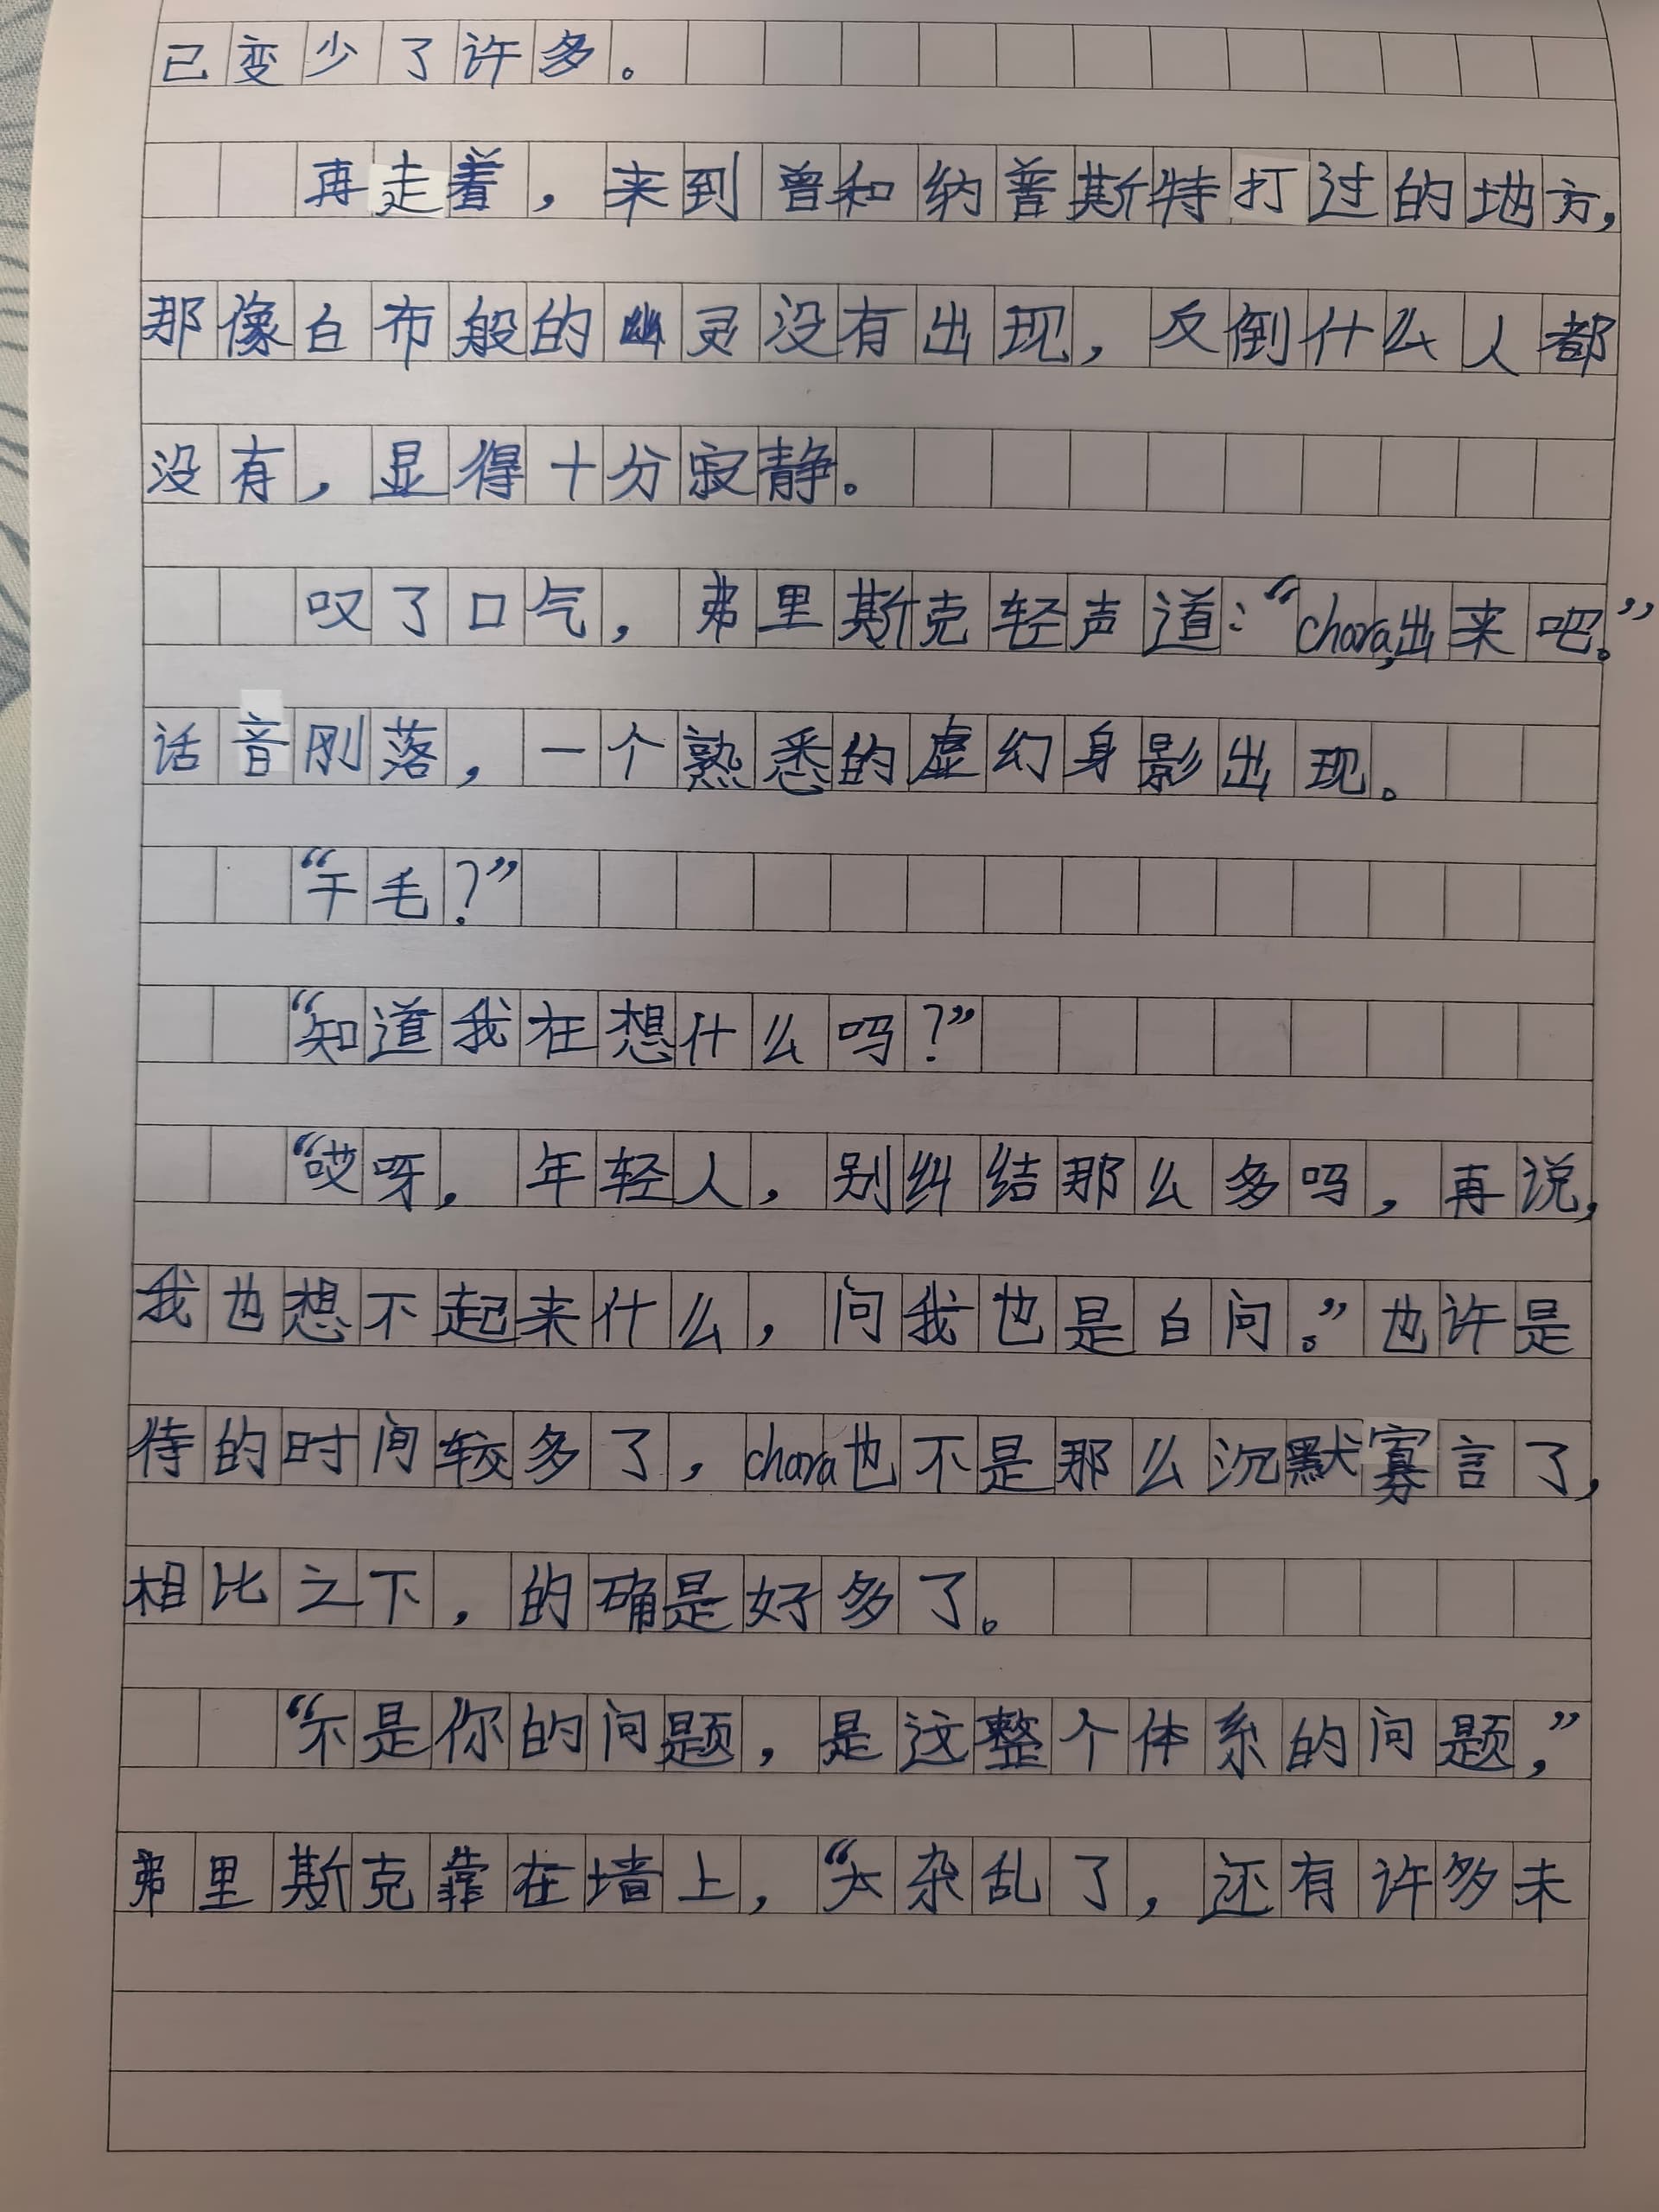 已变少了许多。
再走着，来到曾和纳普斯特打过的地方，
那像白布般的幽灵没有出现，反倒什么人都
没有，显得十分寂静。
叹了口气，弗里斯克轻声道：“chara,出来吧。”
话音刚落，一个熟悉的虚幻身影出现。
“干毛？”
“知道我在想什么吗？”
“哎呀，年轻人，别纠结那么多吗，再说，
我也想不起来什么，问我也是白问。”也许是
待的时间较多了，chara也不是那么沉默寡言了，
相比之下，的确是好多了。
“不是你的问题，是这整个体系的问题，”
弗里斯克靠在墙上，“太杂乱了，还有许多未